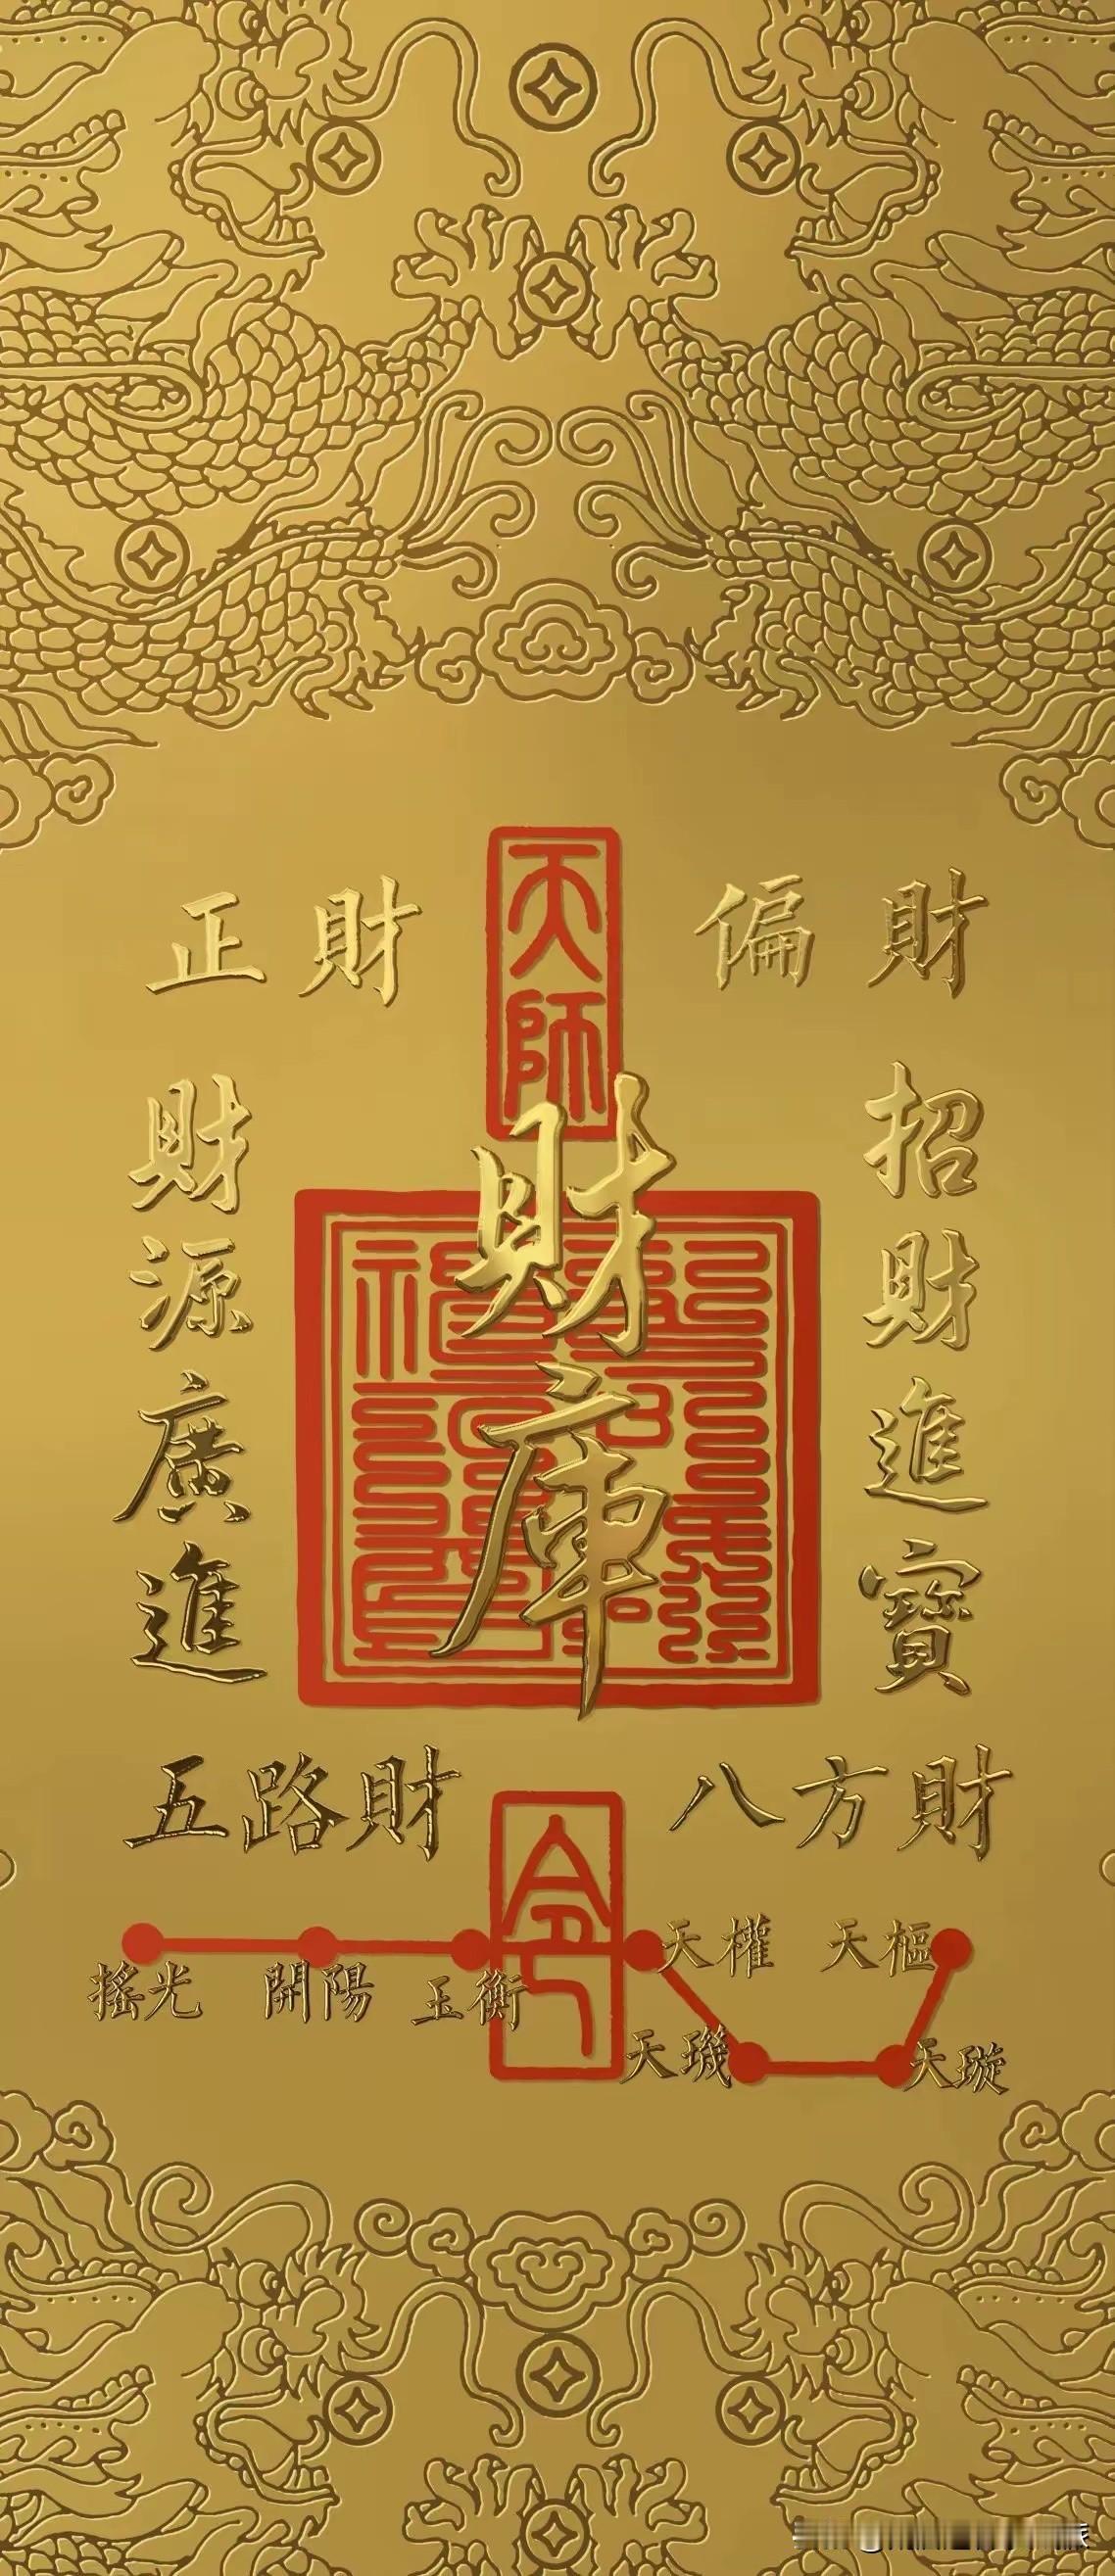 天師
正財
偏財
財庫
招財進寶
財源廣進
五路財
八方財
令
天權
天樞
搖光
開陽
玉衡
天璣
天璇